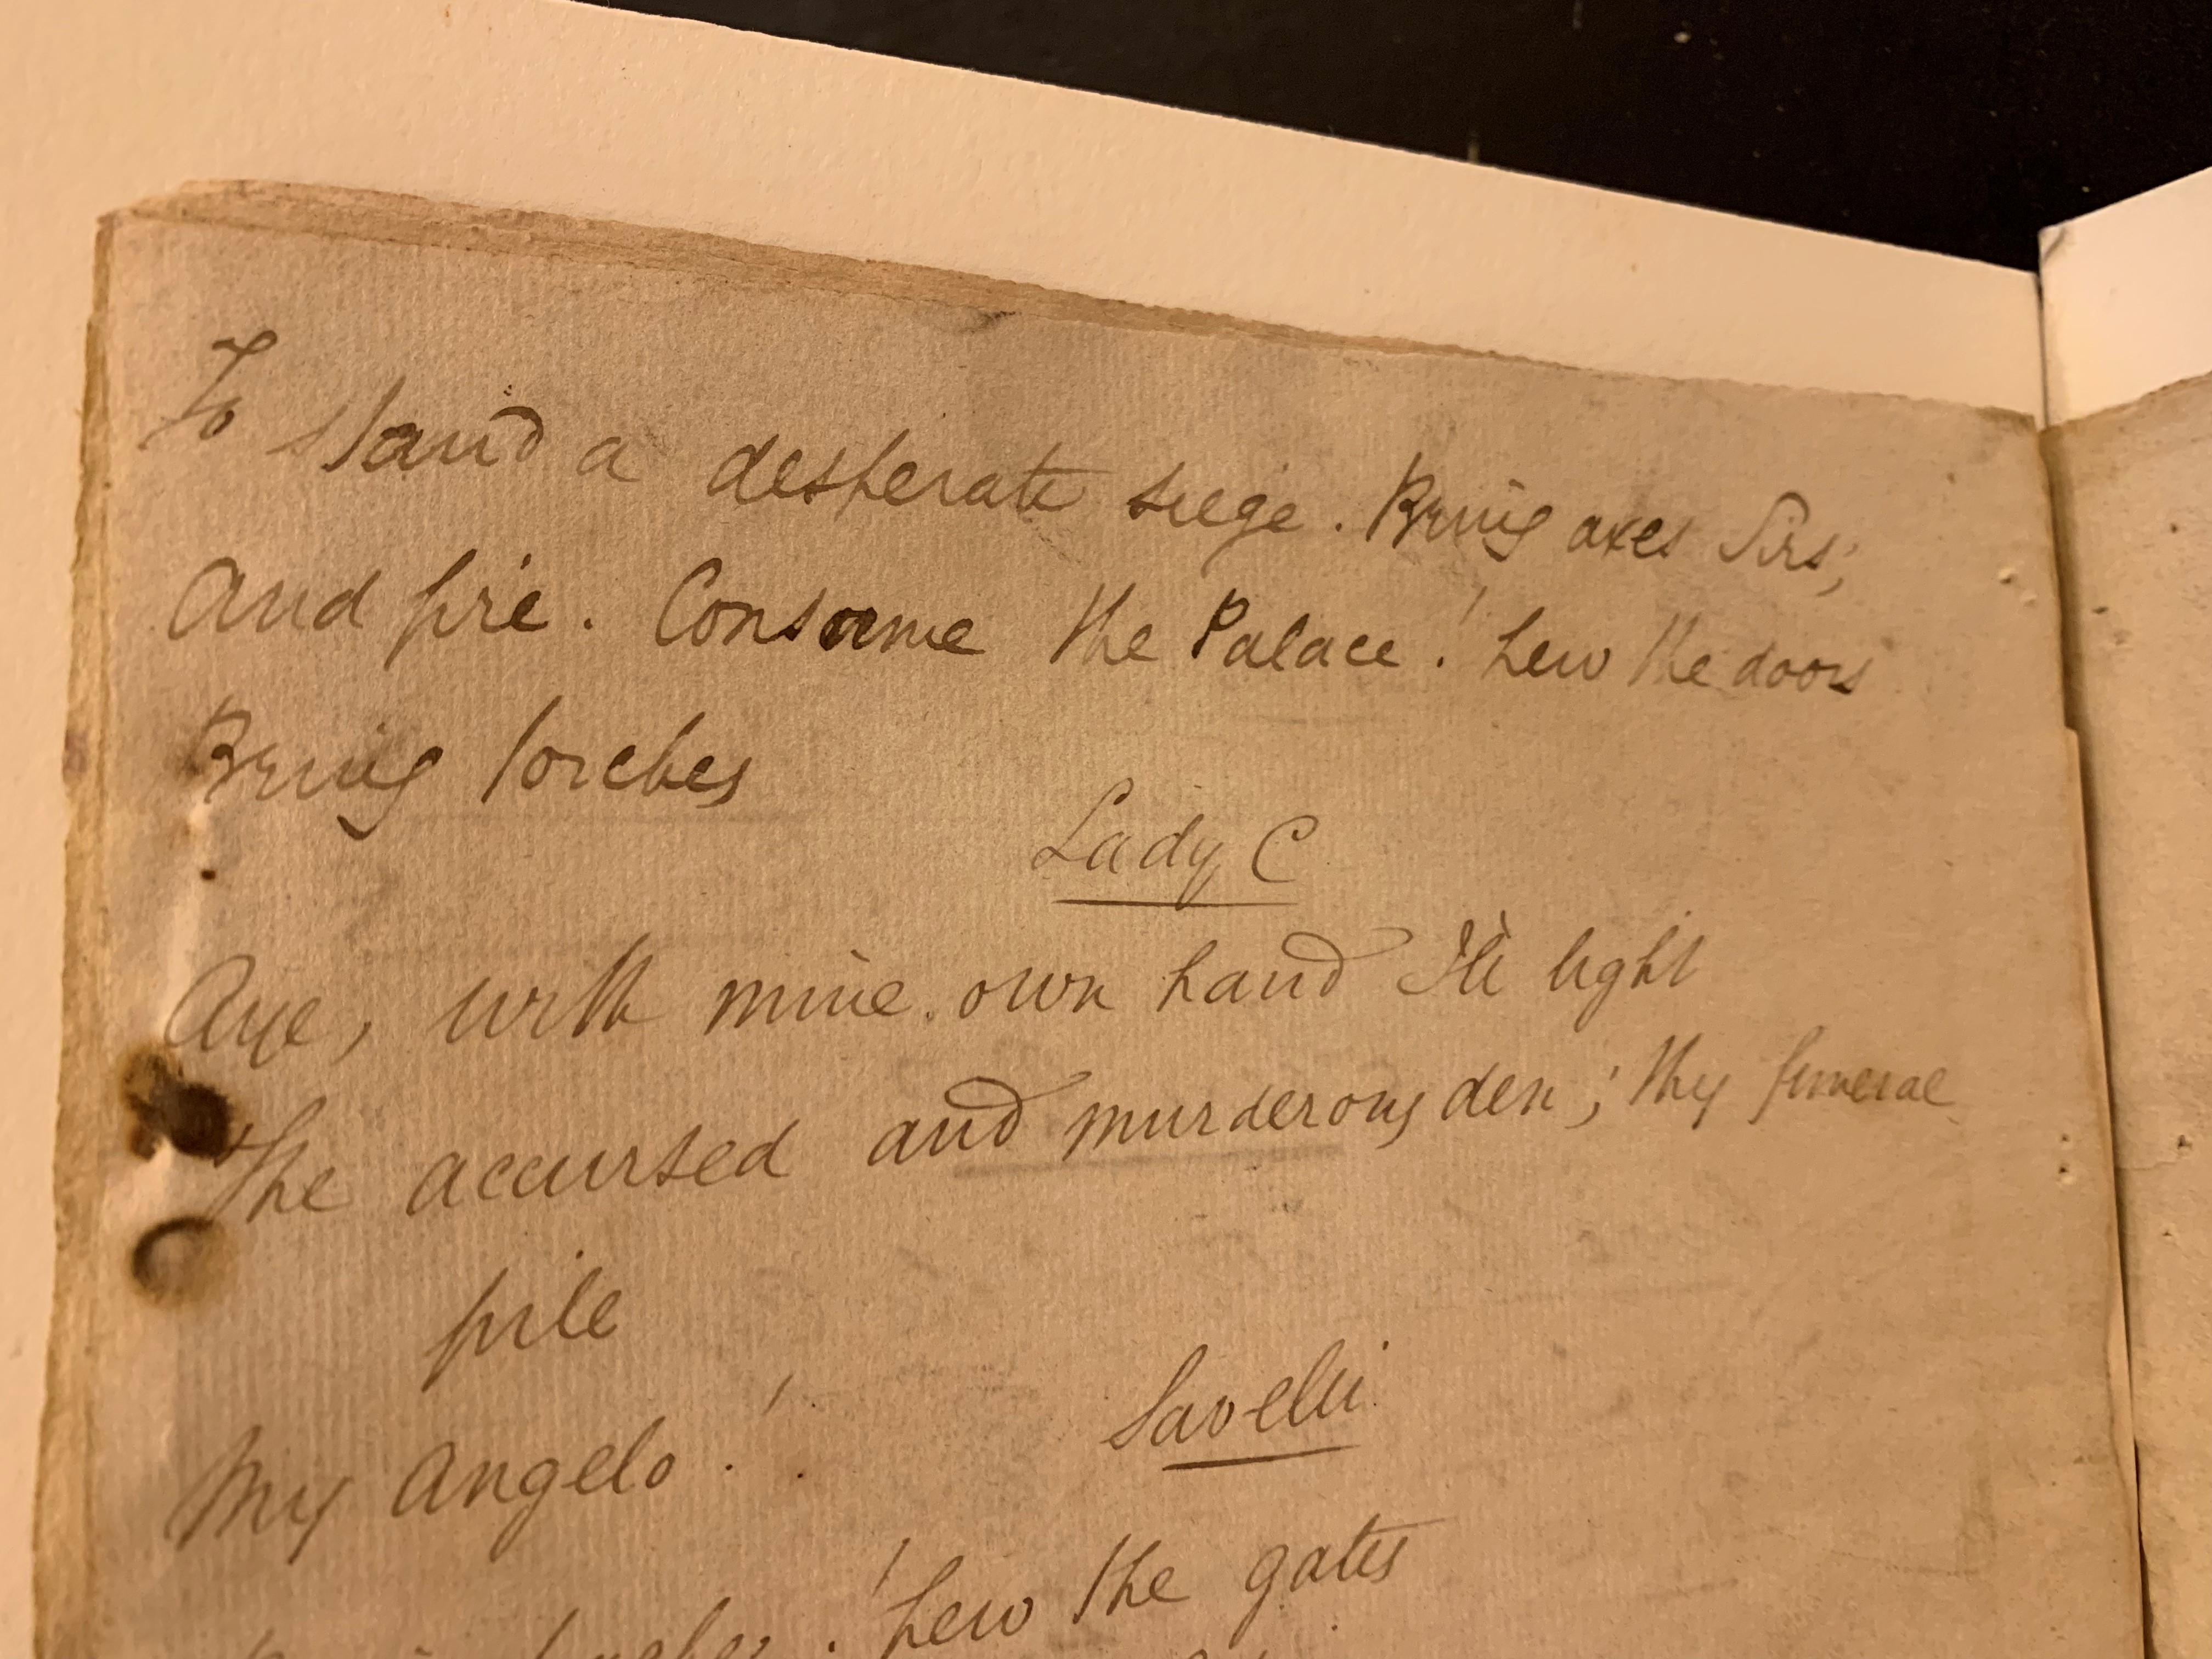 To stand a desperate siege. Bring axes Sirs;
And fire. Consume the Palace! hew the doors
Bring torches
Lady C
Aye, with mine own hand I'll light
The accursed and murderous den; thy funeral
pile
My Angelo!
Savelli
hew the gates